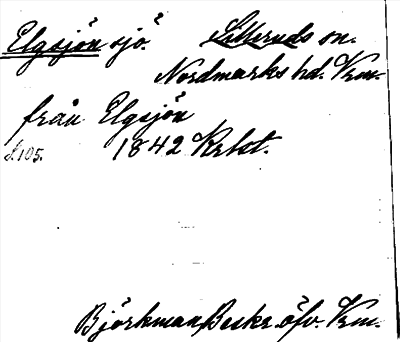 Elgsjön sjö. Silleruds sn.
Nordmarks hd. Vrm.
från Elgsjön
s. 105. 1842 Krbt.
Björkman, Beskr. öfv. Vrm.